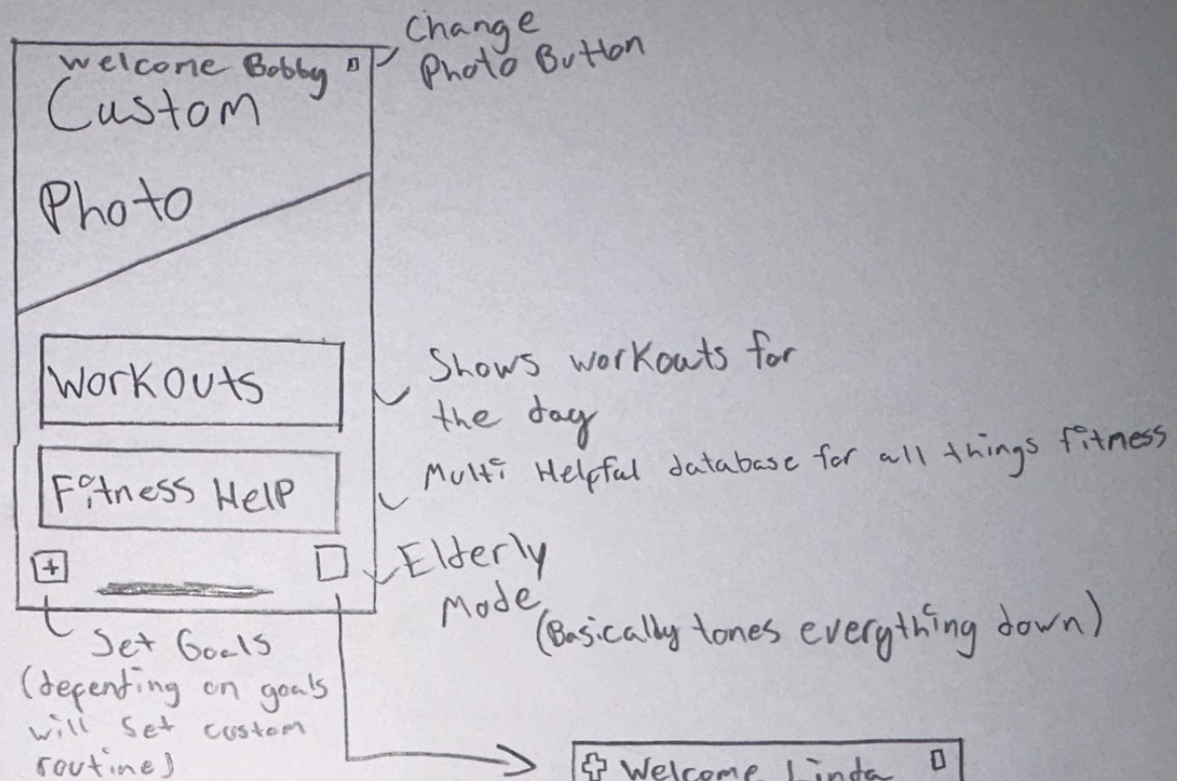 Change
Photo Button
Welcome Bobby
Custom
Photo
Workouts
Shows workouts for
the day
Fitness Help
Multi Helpful database for all things fitness
+
Elderly
Mode
(Basically tones everything down)
Set Goals
(depenting on goals
will set custom
routine)
Welcome Linda